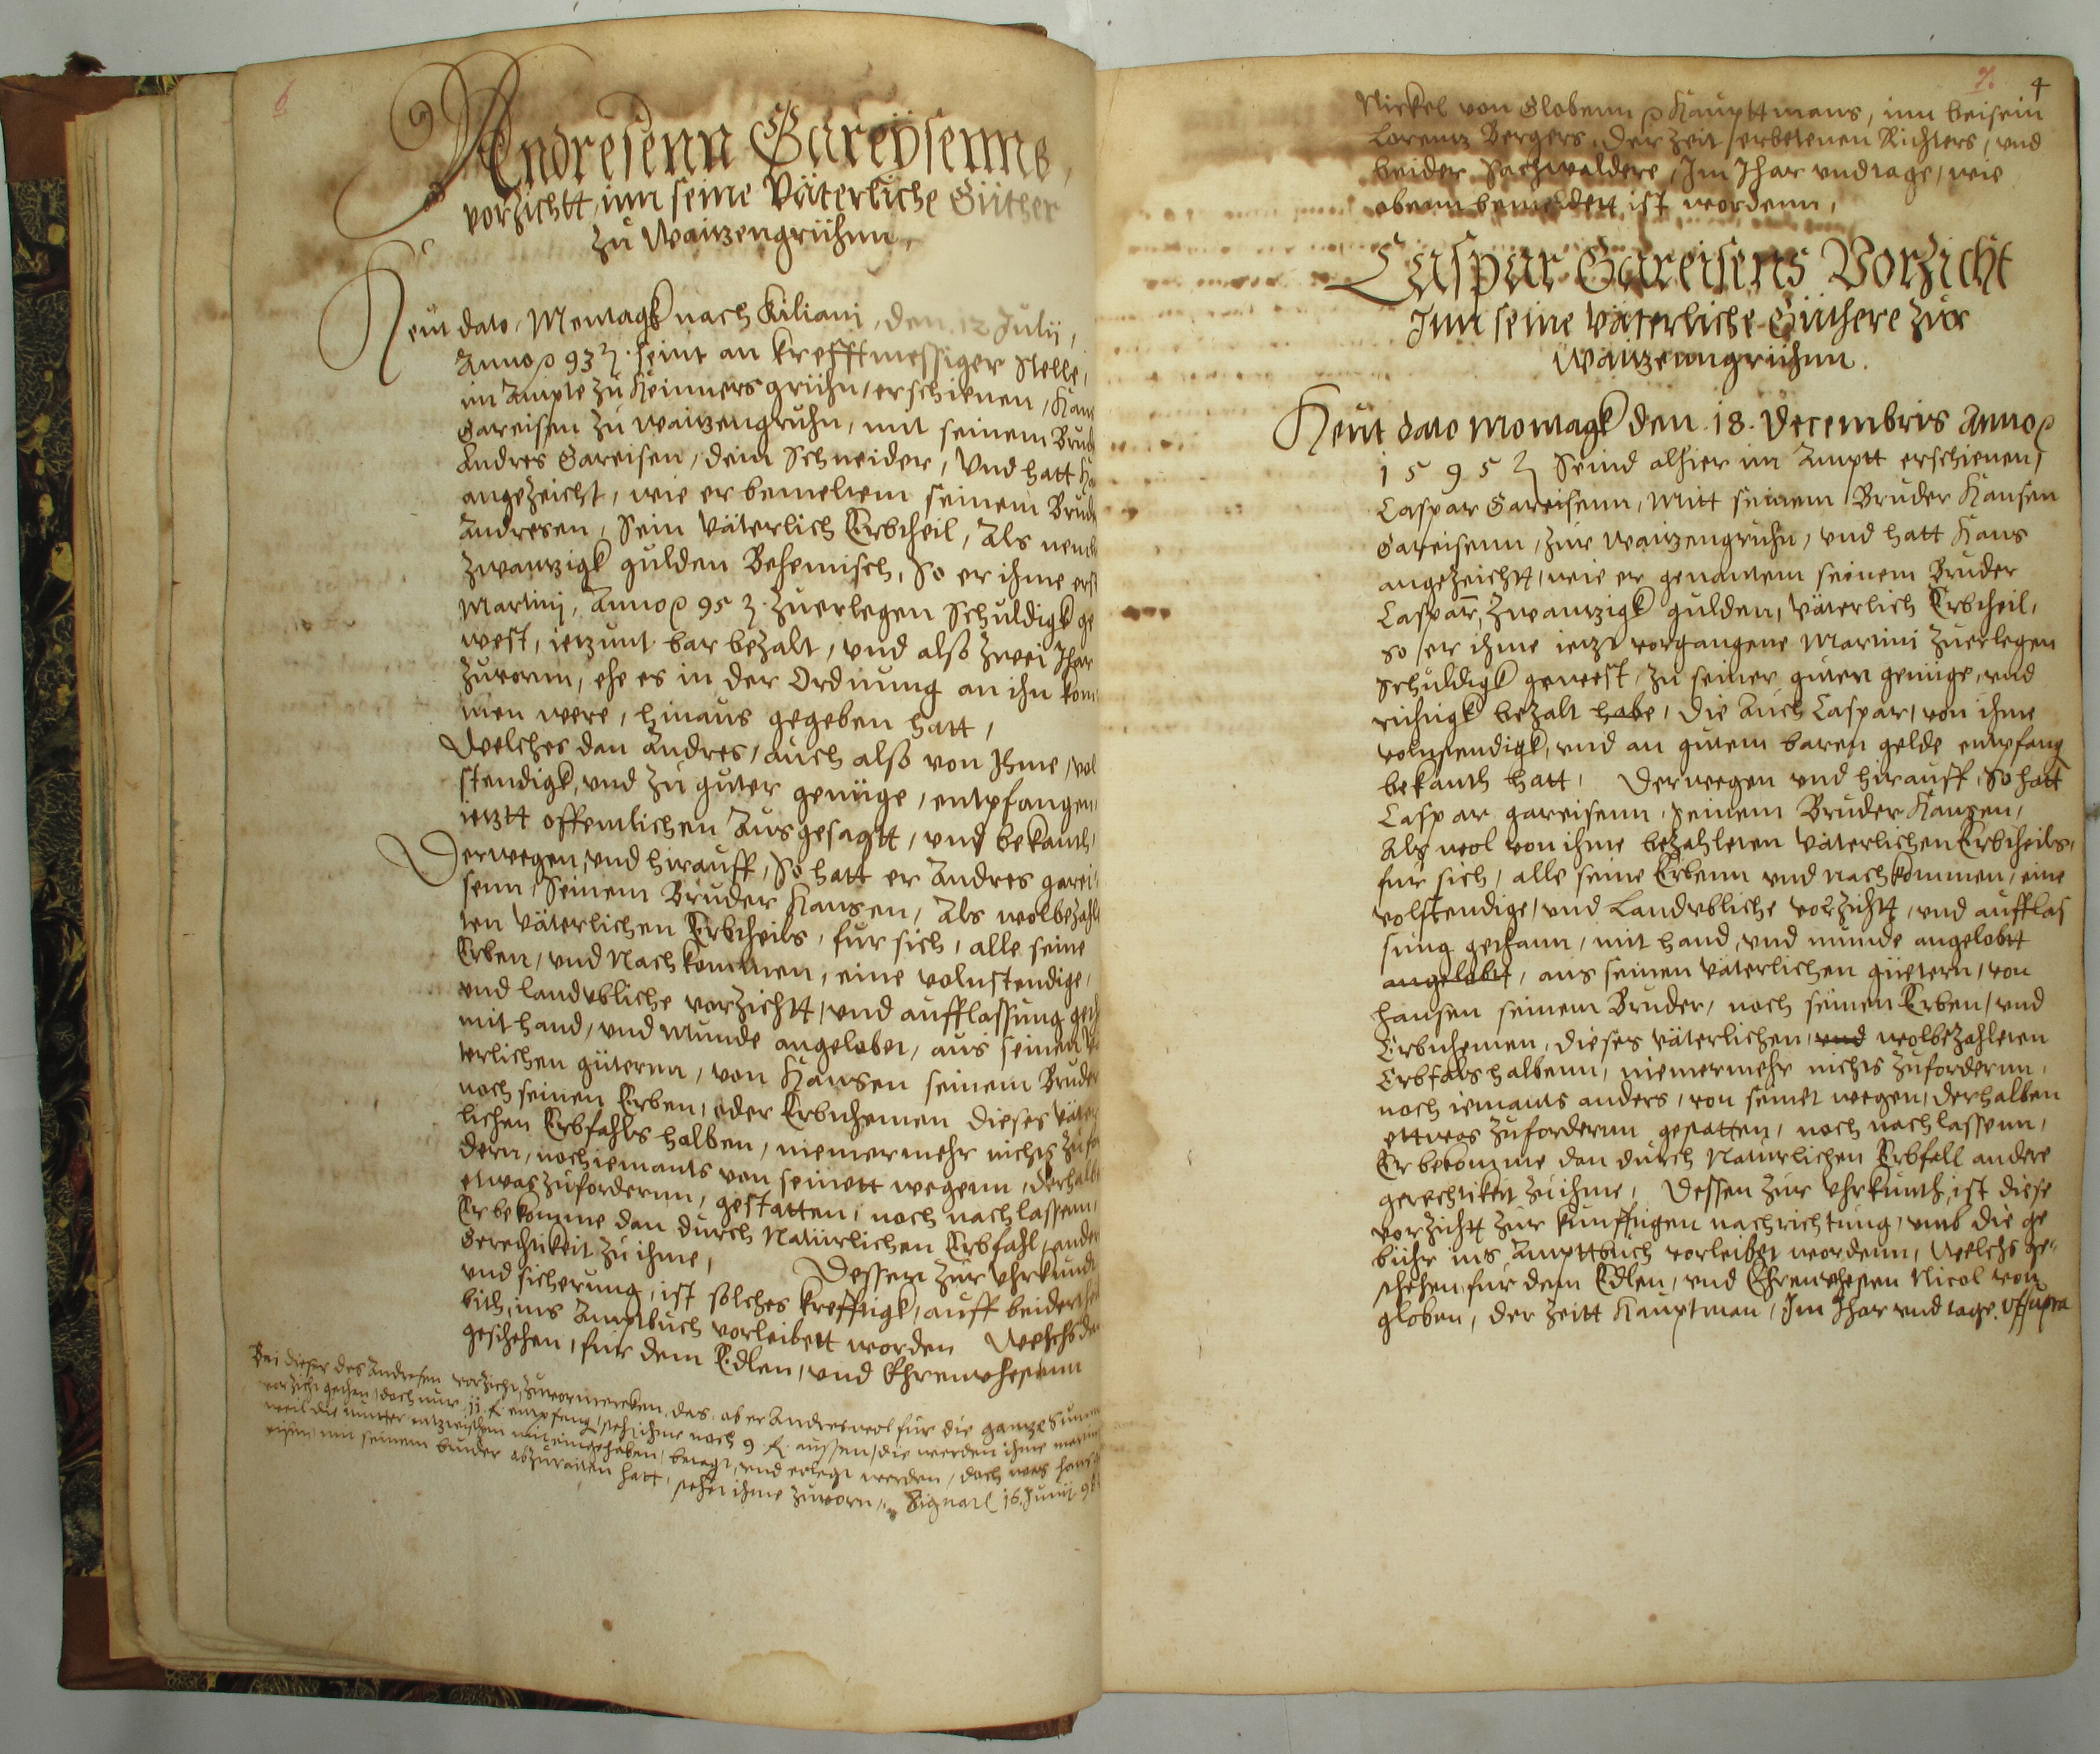 6
Andresenn Gareysenns,
vorzichtt, inn seine Väterliche Güther
zu Waitzengrühnn,
Heut dato, Montagk nach Kiliani, den 12 Julii,
Anno 93. seint an krefftmessiger Stelle,
im Ampte zu Heinnersgrühn, erschienen, Hans
Gareisen zu Waitzengruhn, mit seinem Brud
Andres Gareisen, dem Schneider, Und hatt Ha
angezeicht, wie er bemeltem seinem Brud
Andresen, Sein Väterlich Erbtheil, Als neml
Zwantzigk gulden Behemisch, So er ihme erst
Martinj, Anno 95. Zuerlegen Schuldigk ge
west, ietzunt bar bezalt, und alß zwei Jhar
zuvornn, ehe es in der Ordnung an ihn kom
men were, hinaus gegeben hatt,
Welches dan Andres, auch alß von Jhme, vol
stendigk, und zu guter genüge, entpfangen,
ietztt offentlichen Ausgesagtt, und bekanth,
Derwegen, und hirauff, So hatt er Andres garei
senn, Seinem Bruder Hansen, Als wolbezahl
ten Väterlichen Erbtheils, für sich, alle seine
Erben, und Nachkommen, eine volnstendige,
und landübliche vorzichtt, und aufflassung geth
mit hand, und Munde angelobet, aus seinen Vä
terlichen güternn, von Hansen seinem Bruder
noch seinen Erben, oder Erbnhemen dieses Väter
lichen Erbfahls halben, niemermehr nichts zufo
dern, noch iemants von seinett wegenn, derhalb
etwas zufordernn, gestatten, noch nachlassenn,
Er bekomme dan durch Natürlichen Erbfahl, ander
Gerechtikeit zu ihme, Dessen zur Uhrkundt
und sicherung, ist solches krefftigk, auff beiderthei
bith, ins Amptbuch vorleibett worden Welchs dan
geschehen, für dem Edlen, und Ehrenvhesenn
Bei dieser des Andresen vorzicht, zuvormercken, das, ob er Andres wol für die gantze Summ
vorzicht gethan, doch nur 11 fl. entpfang, steht ihme noch 9 fl. aussen, die werden ihme
weil die mutter entzwischen mit eingehoben, betagt, und erlegt werden, doch was hans
eisen, mit seinem bruder abzuraiten hatt, stehet ihme zuvorn, Signatl 16. Junii 96
7. 4
Nickel von Globenn Haupttmans, inn beisein
Lorentz Bergers, der Zeit, erbetenen Richters, und
beider Sachwaldere, Jm Jhar und tage, wie
obenn bemeldett ist wordenn,
Caspar Gareisens Vorzicht
Jnn seine Väterliche Güthere zur
Waitzenngrühnn.
Heut dato Montagk den. 18. Decembris Anno
1595 Seind alhier im Amptt erschienen,
Caspar Gareisenn, Mitt seinem Bruder Hansen
Gareisenn, zur Waitzengruhn, und hatt Hans
angezeichtt, wie er genantem seinem Bruder
Casparn, Zwantzigk gulden, Väterlich Erbtheil,
so er ihme ietzt vorgangene Martini zuerlegen
Schuldigk gewest, zu seiner guten genüge, und
richtigk bezalt habe, die auch Caspar, von ihme
volnstendigk, und an gutem baren gelde entpfang
bekanth hatt, Derwegen und hirauff, So hatt
Caspar gareisenn, seinem Bruder Hansen,
Als wol von ihme bezahleten Väterlichen Erbtheils,
für sich, alle seine Erbenn und nachkommen, eine
volstendige, und Landübliche vorzichtt, und aufflas
sung gethann, mit hand, und munde angelobtt
angelobtt, aus seinen Väterlichen güetern, von
Hansen seinem Bruder, noch seinen Erben, und
Erbnhemen, dieses Väterlichen, und wolbezahleten
Erbfals halbenn, niemermehr nichts zufordernn,
noch iemants anders, von seinet wegen, derhalben
ettwas zufordernn gestatten, noch nachlassenn,
Er bekomme dan durch Natürlichen Erbfall andere
gerechtikeit zu ihme, Dessen zur Uhrkunth, ist diese
vorzichtt zur kunfftigen nachrichtung, umb die ge
bühr ins Ampttbuch vorleibet wordenn, Welchs ge
schehen, für dem Edlen, und Ehrenvhesen Nicol von
globen, der Zeitt Hauptman, Jm Jhar und tage. Ut supra